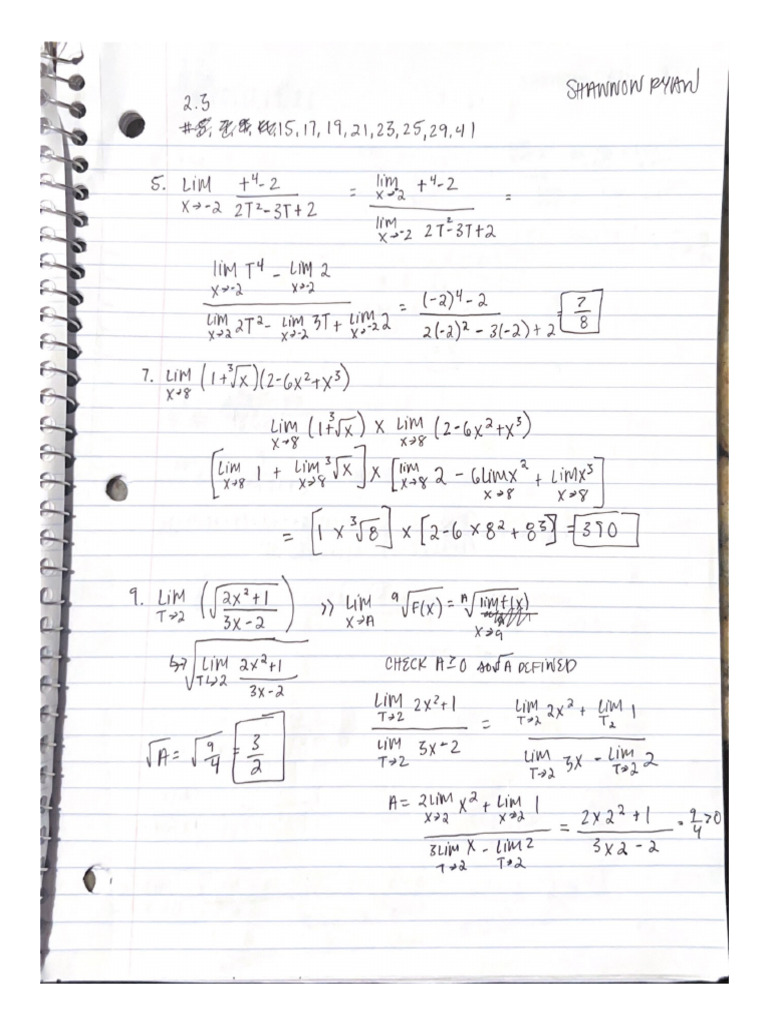 SHANNON RYAN
2.3
#5, 7, 9, 15, 17, 19, 21, 23, 25, 29, 41
5. Lim x→-2 (t⁴-2)/(2T²-3T+2) = (lim x→-2 t⁴-2)/(lim x→-2 2T²-3T+2) =
(lim x→-2 T⁴ - Lim x→-2 2)/(Lim x→2 2T² - Lim x→-2 3T + Lim x→-2 2) = ((-2)⁴-2)/(2(-2)²-3(-2)+2) = 7/8
7. Lim x→8 (1+³√x)(2-6x²+x³)
Lim x→8 (1+³√x) x Lim x→8 (2-6x²+x³)
[Lim x→8 1 + Lim x→8 ³√x] x [lim x→8 2 - 6Lim x→8 x² + Lim x→8 x³]
= [1 x ³√8] x [2-6 x 8² + 8³] = 390
9. Lim T→2 (√((2x²+1)/(3x-2))) >> Lim x→A ⁿ√F(x) = ⁿ√lim x→a f(x)
↳ √(Lim T→2 (2x²+1)/(3x-2)) CHECK A≥0 so √A DEFINED
(Lim T→2 2x²+1)/(Lim T→2 3x-2) = (Lim T→2 2x² + Lim T2 1)/(Lim T→2 3x - Lim T→2 2)
√A = √(9/4) = 3/2
A = (2Lim x→2 x² + Lim x→2 1)/(3Lim T→2 x - Lim T→2 2) = (2x2²+1)/(3x2-2) = 9/4 >0